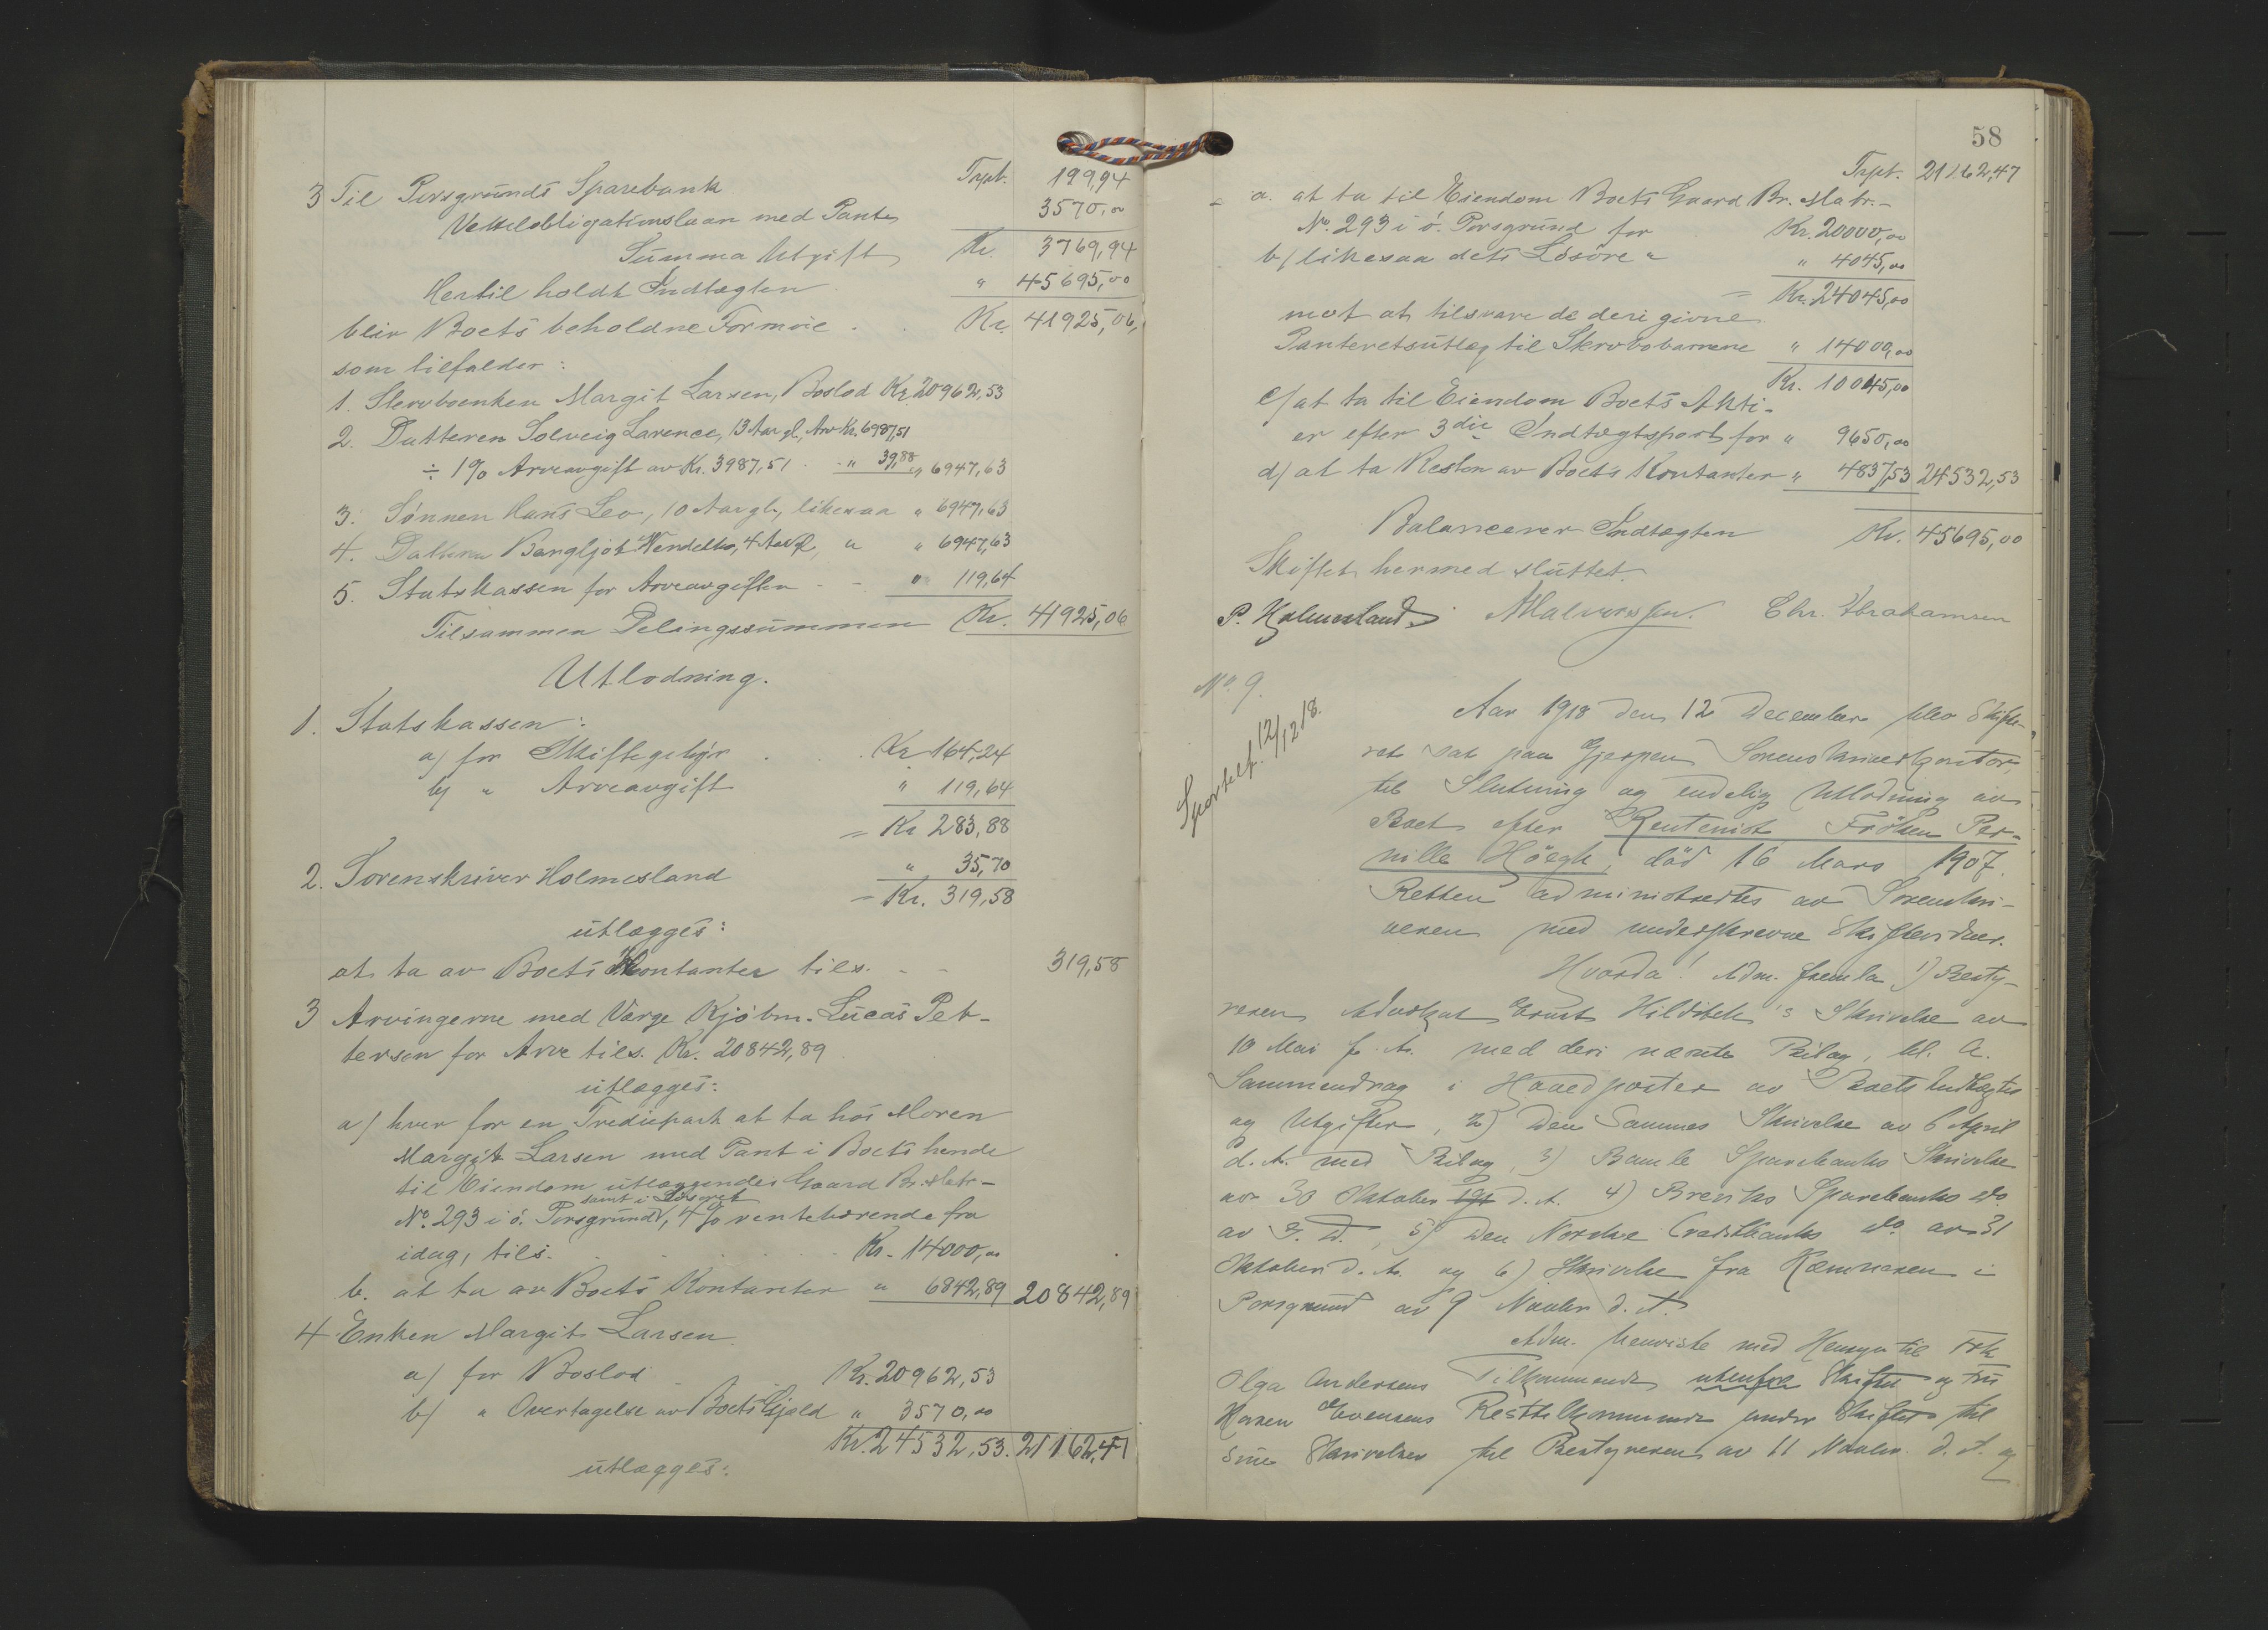 Trpt. 199,94
3 Til Porsgrunds Sparebank
Vekselobligationslaan med Pant 3570,00
Summa Utgift Kr. 3769,94
Hertil holdt Indtægten " 45695,00
blir Boets beholdne Formue . . Kr. 41925,06,
som tilfalder:
1. Stervboenken Margit Larsen, Boslod Kr. 20962,53
2. Datteren Solveig Larence, 13 Aar gl., Arv Kr. 6987,51
÷ 1% Arveavgift av Kr. 3987,51 - " 39,88 " 6947,63
3. Sønnen Hans Leo, 10 Aar gl., likesaa " 6947,63
4. Datteren Bergljot Wendelbo, 4 Aar gl, " " 6947,63
5. Statskassen for Arveavgiften - - " 119,64
Tilsammen Delingssummen Kr. 41925,06
Utlodning.
1. Statskassen:
a) for Skiftegebyr . . Kr 164,24
b) " Arveavgift " 119,64
= Kr 283,88
2. Sorenskriver Holmesland " 35,70
= Kr. 319,58
utlægges:
at ta av Boets Kontanter tils. - - 319,58
3 Arvingerne med Værge Kjøbm. Lucas Pet-
tersen for Arv tils. Kr. 20842,89
utlægges:
a) hver for en Trediepart at ta hos Moren
Margit Larsen med Pant i Boets hende
til Eiendom utlæggendes Gaard Br. Matr-
samt i Løsøret
No. 293 i ø. Porsgrund, 4% rentebærende fra
idag, tils. . . . Kr. 14000,00
b. at ta av Boets Kontanter " 6842,89 20842,89
4 Enken Margit Larsen
a) for Boslod - Kr. 20962,53
b) " Overtagelse av Boets Gjæld " 3570,00
Kr. 24532,53. 21162,47
utlægges:
58
Trpt. 21162,47
a. at ta til Eiendom Boets Gaard Br. Matr.-
No. 293 i ø. Porsgrund for Kr. 20000,00
b) likesaa dets Løsøre " " 4045,00
= Kr. 24045,00
mot at tilsvare de deri givne
Panteretsutlæg til Stervbobarnene " 14000,00
Kr. 10045,00
c) at ta til Eiendom Boets Akti-
er efter 3die Indtægtspost for " 9650,00
d) at ta Resten av Boets Kontanter " 4837,53 24532,53
Balancerer Indtægten Kr. 45695,00
Skiftet hermed sluttet.
P. Holmesland. A Halvorssen. Chr. Abrahamsen
No 9.
Sportelf. 12/12 18.
Aar 1918 den 12 December blev Skifte-
ret sat paa Gjerpen Sorenskriverkontor
til Slutning og endelig Utlodning av
Boet efter Rentenist Frøken Per-
nille Høegh, død 16 Mars 1907.
Retten administrertes av Sorenskri-
veren med underskrevne Skiftevidner.
Hvorda! Adm. fremla 1) Besty-
reren Advokat Ernst Hilditch's Skrivelse av
10 Mai f. A. med deri nævnte Bilag, bl. a.
Sammendrag i Hovedposter av Boets Indtægter
og Utgifter, 2) Den Sammes Skrivelse av 6 April
d. A. med Bilag, 3) Bamle Sparebanks Skrivelse
av 30 Oktober d. A. 4) Breviks Sparebanks do.
av s. D., 5) Den Norske Creditbanks do. av 31
Oktober d. A. og 6) Skrivelse fra Kæmneren i
Porsgrund av 9 Novbr d. A.
Adm. henviste med Hensyn til Frk
Olga Andersens Tilkommende utenfor Skiftet og Fru
Maren Evensens Resttilkommende under Skiftet til
sine Skrivelser til Bestyreren av 11 Novbr. d. A. og